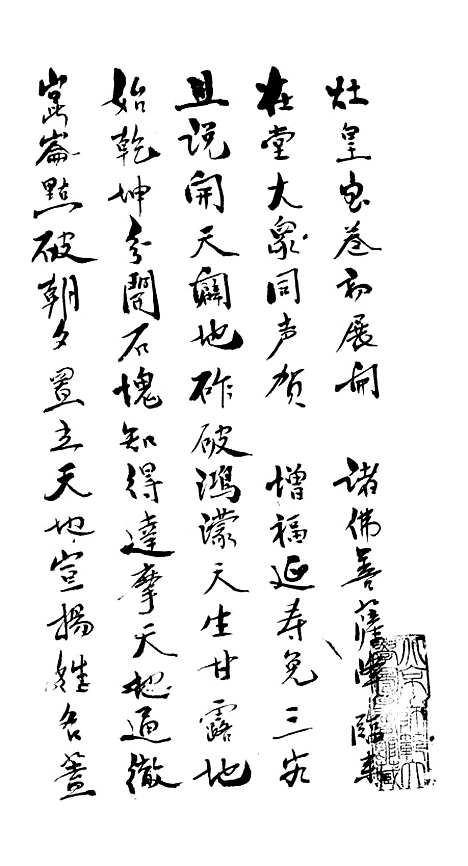 灶皇宝卷初展開 諸佛菩薩降臨来
在堂大衆同声贺 增福延寿免三灾
且说開天闢地砟破鴻濛天生甘露地
始乾坤分閙石塊知得達摩天地通徹
崑崙點破朝夕置立天地宣揚姓名蓋